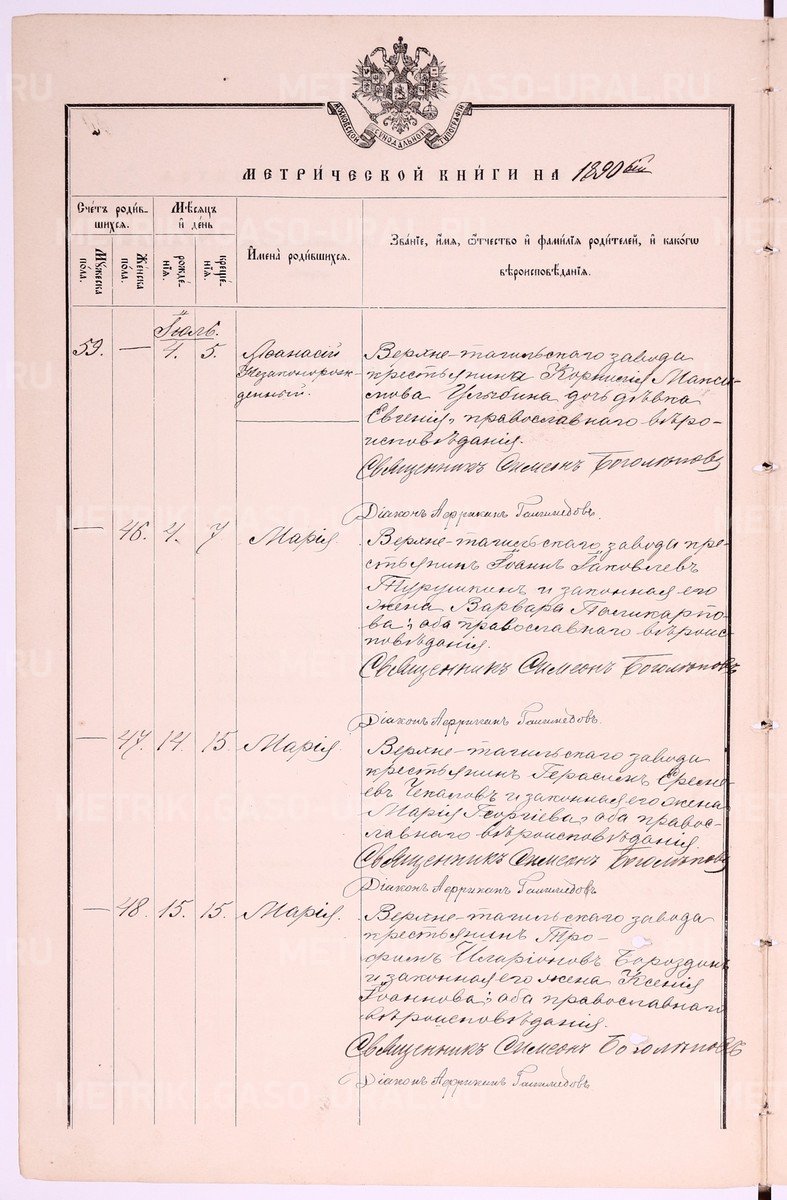 МОСКОВСКОЙ СѴНОДАЛЬНОЙ ТИПОГРАФІИ
МЕТРИ́ЧЕСКОЙ КНИ́ГИ НА 1890 й
Сче́тъ роди́в-
шихся.
Мꙋ́жеска по́ла.
Же́нска по́ла.
Мѣ́сяцъ и҆ де́нь
рожде́нїя.
креще́нїя.
И҆мена̀ роди́вшихся.
Зва́нїе, и҆́мя, ѻ҆́тчество и҆ фами́лїя роди́телей, и҆ како́гѡ
вѣроисповѣ́данїя.
Іюль.
59. — 4. 5. Аѳанасій
Незаконорож-
денный.
Верхне-тагильскаго завода
крестьянина Корнилія Макси-
мова Улыбина дочь дѣвка
Евгенія, православнаго вѣро-
исповѣданія.
Священникъ Симеонъ Боголюповъ
Діаконъ Африканъ
— 46. 4. 7 Марія.
Верхне-тагильскаго завода кре-
стьянинъ Іоаннъ Іаковлевъ
Турушкинъ и законная его
жена Варвара Поликарпо-
ва; оба православнаго вѣроис-
повѣданія.
Священникъ Симеонъ Боголюповъ
Діаконъ Африканъ
— 47. 14. 15. Марія.
Верхне-тагильскаго завода
крестьянинъ Герасимъ Ереме-
евъ Чекасовъ и законная его жена
Марія Георгіева; оба правос-
лавнаго вѣроисповѣданія.
Священникъ Симеонъ Боголюповъ
Діаконъ Африканъ
— 48. 15. 15. Марія.
Верхне-тагильскаго завода
крестьянинъ Тро-
фимъ Иларіоновъ Бороздинъ
и законная его жена Ксенія
Іоаннова; оба православнаго
вѣроисповѣданія.
Священникъ Симеонъ Боголюповъ
Діаконъ Африканъ
METRIKI.GASO-URAL.RU